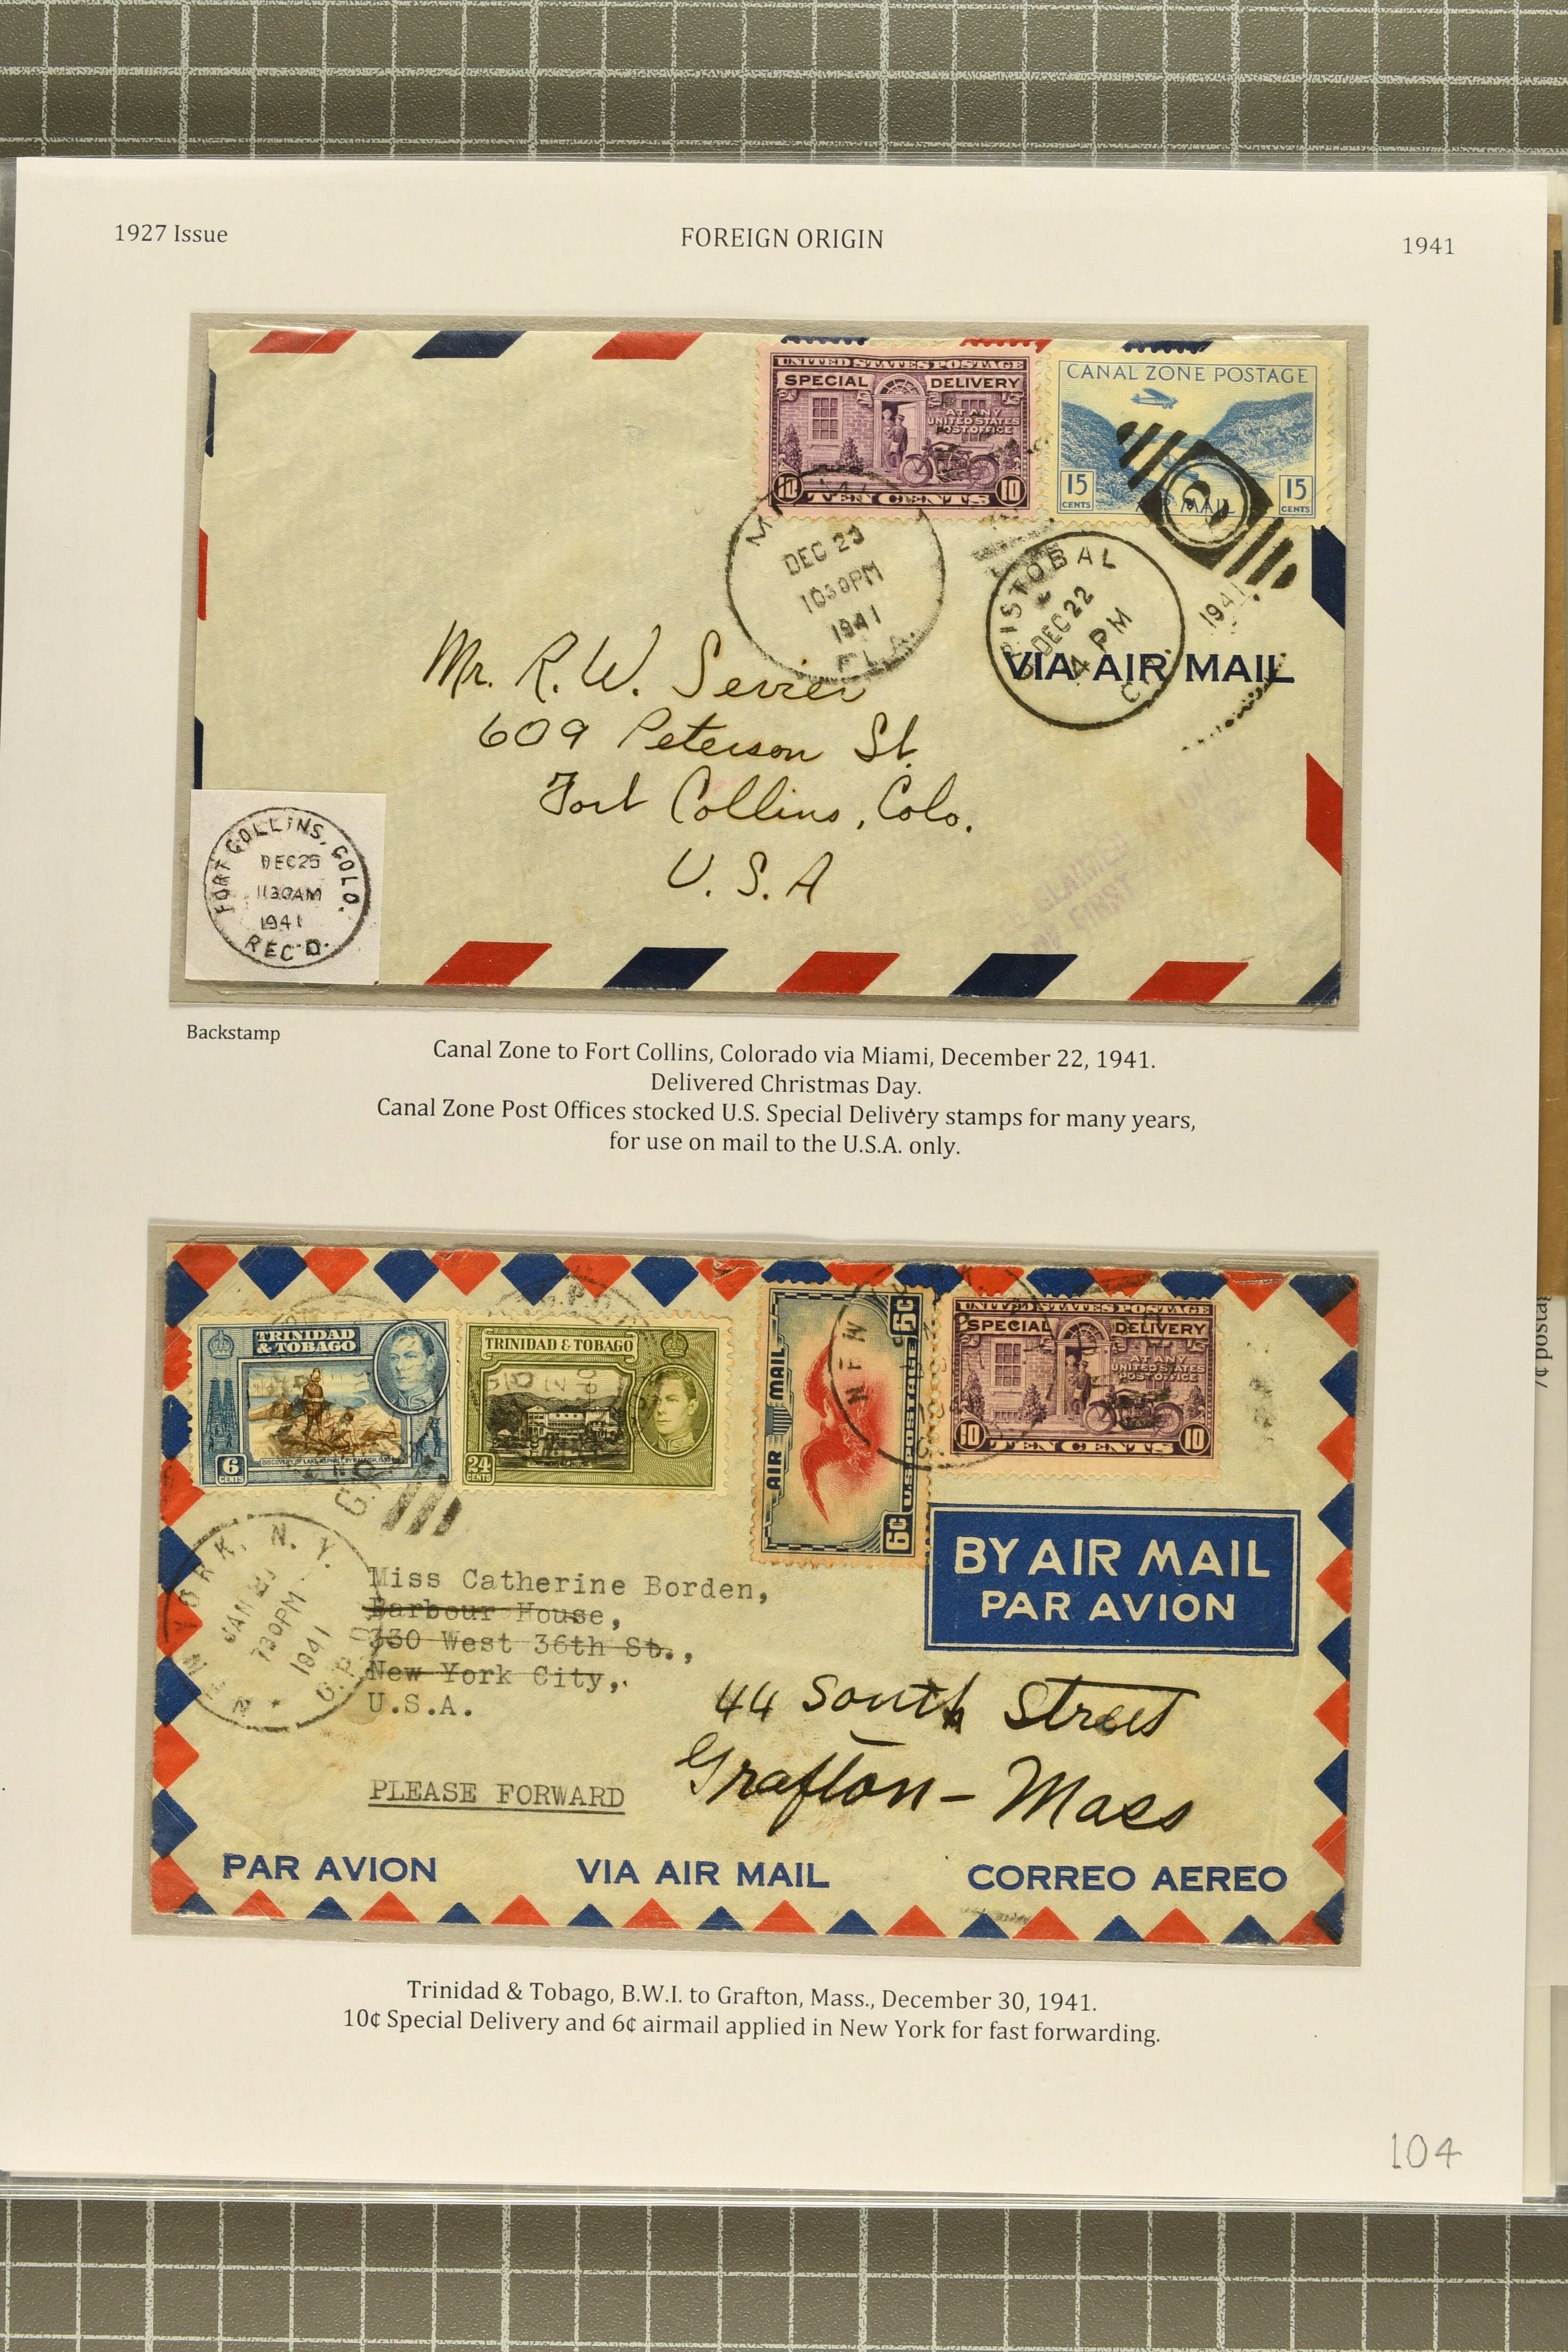 1927 Issue
FOREIGN ORIGIN
1941
UNITED STATES POSTAGE
SPECIAL DELIVERY
AT ANY
UNITED STATES
POST OFFICE
10 TEN CENTS 10
CANAL ZONE POSTAGE
15 CENTS
AIR MAIL
15 CENTS
DEC 23
1030PM
1941
FLA.
CRISTOBAL
DEC 22
4 PM
1941
VIA AIR MAIL
Mr. R. W. Sevier
609 Peterson St.
Fort Collins, Colo.
U. S. A
FORT COLLINS, COLO.
DEC 25
1130AM
1941
REC'D.
FIRST
Backstamp
Canal Zone to Fort Collins, Colorado via Miami, December 22, 1941.
Delivered Christmas Day.
Canal Zone Post Offices stocked U.S. Special Delivery stamps for many years,
for use on mail to the U.S.A. only.
TRINIDAD
& TOBAGO
6 CENTS
DISCOVERY OF LAKE ASPHALT BY RALEIGH, 1595
TRINIDAD & TOBAGO
24 CENTS
AIR MAIL
U.S. POSTAGE
6¢
6¢
NEW
UNITED STATES POSTAGE
SPECIAL DELIVERY
AT ANY
UNITED STATES
POST OFFICE
10 TEN CENTS 10
BY AIR MAIL
PAR AVION
YORK, N. Y.
JAN
730PM
1941
G.P.O.
Miss Catherine Borden,
Barbour House,
330 West 36th St.,
New York City,
U.S.A.
44 South Street
Grafton - Mass
PLEASE FORWARD
PAR AVION
VIA AIR MAIL
CORREO AEREO
Trinidad & Tobago, B.W.I. to Grafton, Mass., December 30, 1941.
10¢ Special Delivery and 6¢ airmail applied in New York for fast forwarding.
104
7¢ posta